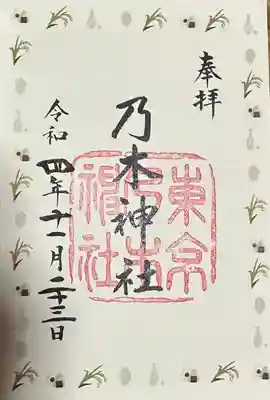 奉拝
乃木神社
東京乃木神社
令和四年十一月二十三日